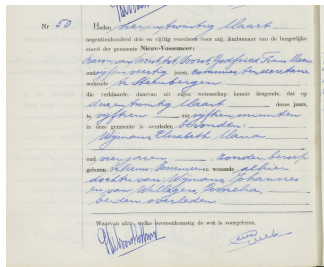 Nr 50 Heden vier en twintig Maart
negentienhonderd drie en vijftig verscheen voor mij, Ambtenaar van de burgerlijke
stand der gemeente Nieuw-Vossemeer:
Baron van Voorst tot Voorst, Godfried Frans Maria
oud vijf en veertig jaren,
wonende te Steenbergen
die verklaarde, daarvan uit eigen wetenschap kennis dragende, dat op
drie en twintig Maart dezes jaars,
te vijftien uur vijftien minuten
in deze gemeente is overleden
Wijmans Elisabeth Maria
oud jaren, zonder beroep
geboren en wonende alhier
dochter van Wijmans, Johannes
en van Willegers, Cornelia,
beiden overleden
Waarvan akte, welke overeenkomstig de wet is voorgelezen.